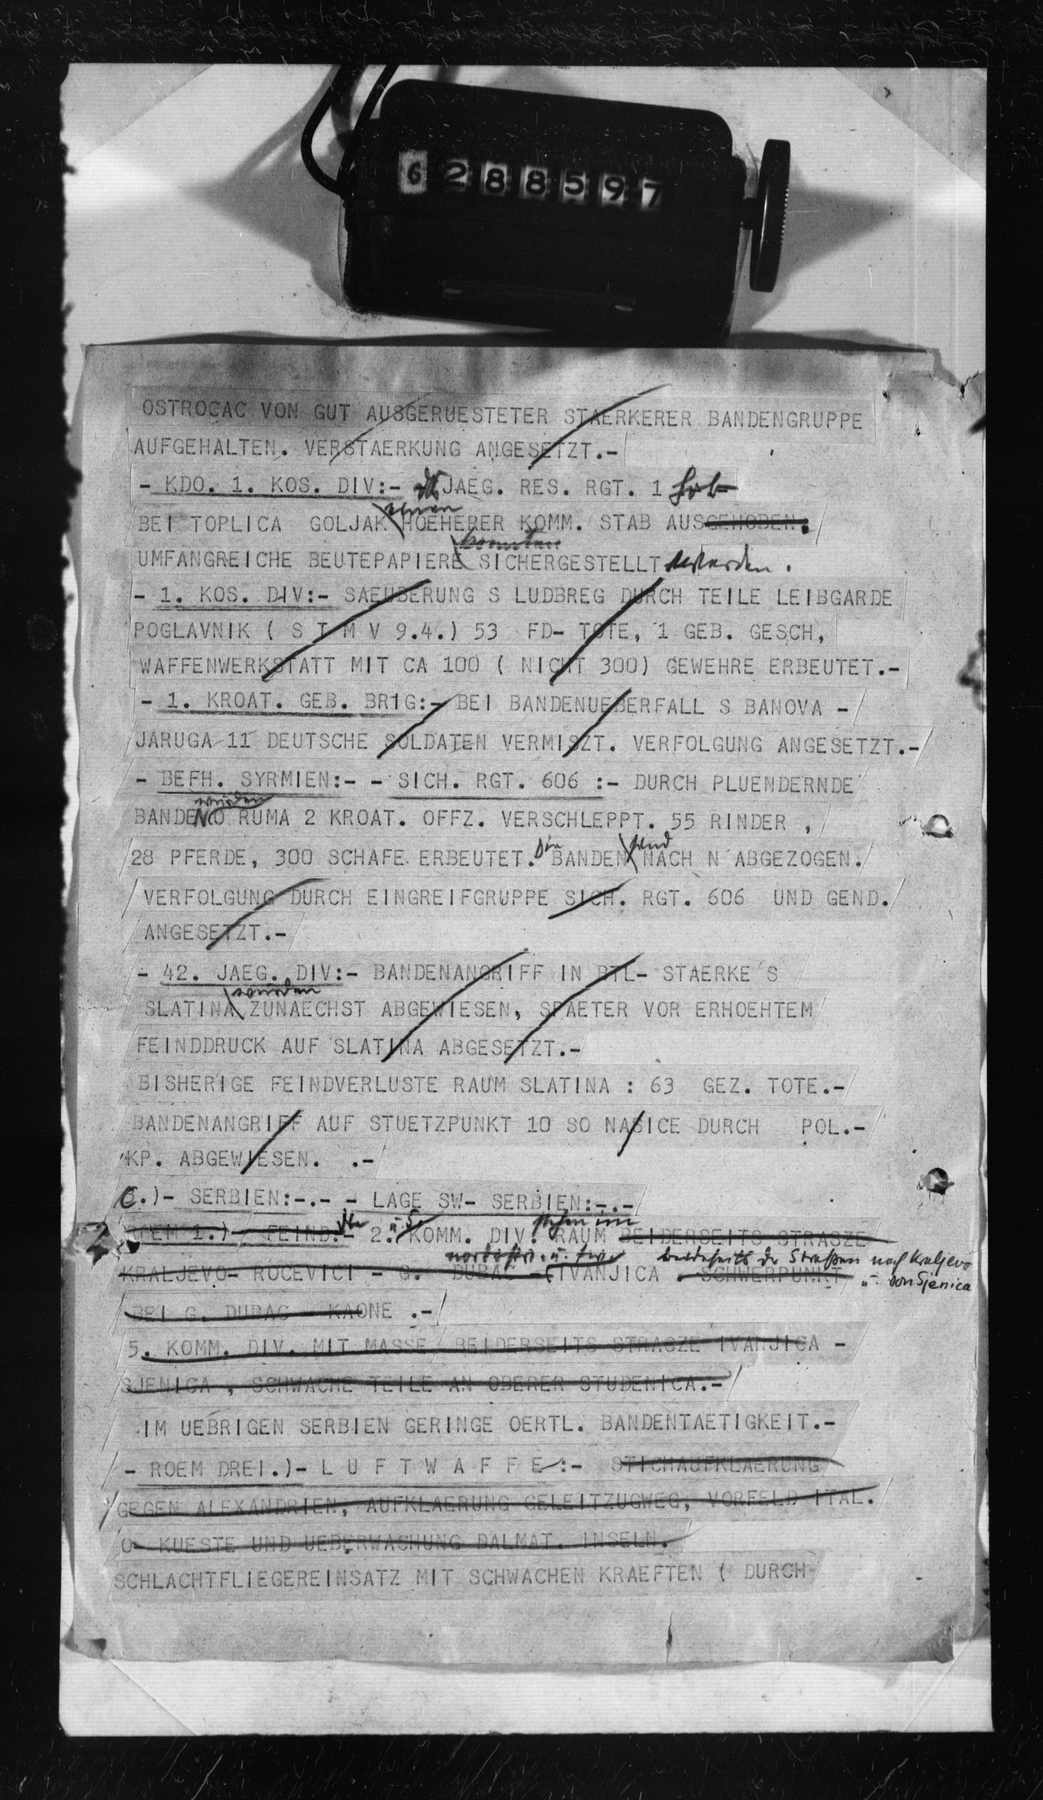 6288597
OSTROCAC VON GUT AUSGERUESTETER STAERKERER BANDENGRUPPE
AUFGEHALTEN. VERSTAERKUNG ANGESETZT.-
- KDO. 1. KOS. DIV:- JAEG. RES. RGT. 1 hob
einen
BEI TOPLICA GOLJAK HOEHERER KOMM. STAB AUSGEHOBEN.
konnten
UMFANGREICHE BEUTEPAPIERE SICHERGESTELLT werden.
- 1. KOS. DIV:- SAEUBERUNG S LUDBREG DURCH TEILE LEIBGARDE
POGLAVNIK ( S T M V 9.4.) 53 FD- TOTE, 1 GEB. GESCH,
WAFFENWERKSTATT MIT CA 100 ( NICHT 300) GEWEHRE ERBEUTET.-
- 1. KROAT. GEB. BRIG:- BEI BANDENUEBERFALL S BANOVA -
JARUGA 11 DEUTSCHE SOLDATEN VERMISZT. VERFOLGUNG ANGESETZT.-
- BEFH. SYRMIEN:- - SICH. RGT. 606 :- DURCH PLUENDERNDE
wurden
BANDEN O RUMA 2 KROAT. OFFZ. VERSCHLEPPT. 55 RINDER ,
28 PFERDE, 300 SCHAFE ERBEUTET. Die BANDEN sind NACH N ABGEZOGEN.
VERFOLGUNG DURCH EINGREIFGRUPPE SICH. RGT. 606 UND GEND.
ANGESETZT.-
- 42. JAEG. DIV:- BANDENANGRIFF IN BTL- STAERKE S
wurden
SLATINA ZUNAECHST ABGEWIESEN, SPAETER VOR ERHOEHTEM
FEINDDRUCK AUF SLATINA ABGESETZT.-
BISHERIGE FEINDVERLUSTE RAUM SLATINA : 63 GEZ. TOTE.-
BANDENANGRIFF AUF STUETZPUNKT 10 SO NASICE DURCH POL.-
KP. ABGEWIESEN. .-
C.)- SERBIEN:-.- - LAGE SW- SERBIEN:-.-
die u. 5. stehen im
1.)- FEIND:- 2. KOMM. DIV. RAUM BEIDERSEITS STRASZE
beiderseits der Straßen nach Kraljevo
KRALJEVO- ROCEVICI - G. DUBAC - IVANJICA - SCHWERPUNKT u. von Sjenica
BEI G. DUBAC - KAONE .-
5. KOMM. DIV. MIT MASSE BEIDERSEITS STRASZE IVANJICA -
SJENICA , SCHWACHE TEILE AN OBERER STUDENICA.-
IM UEBRIGEN SERBIEN GERINGE OERTL. BANDENTAETIGKEIT.-
- ROEM DREI.)- L U F T W A F F E :- STICHAUFKLAERUNG
GEGEN ALEXANDRIEN, AUFKLAERUNG GELEITZUGWEG, VORFELD ITAL.
O- KUESTE UND UEBERWACHUNG DALMAT. INSELN.
SCHLACHTFLIEGEREINSATZ MIT SCHWACHEN KRAEFTEN ( DURCH